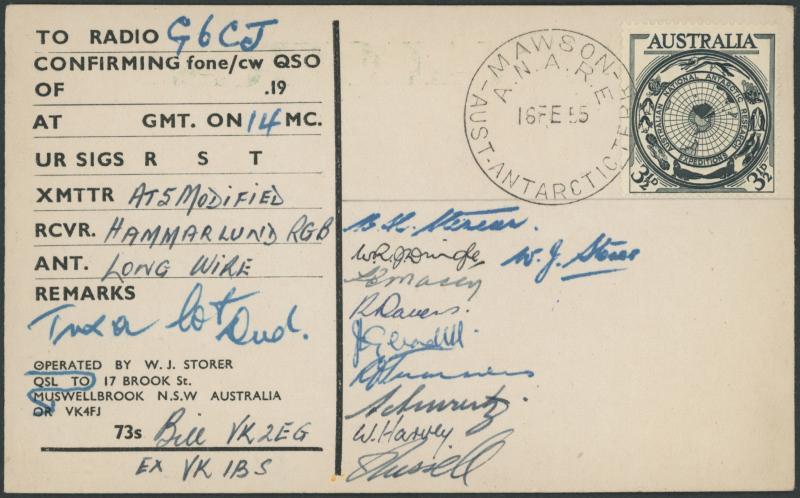 TO RADIO G6CJ
CONFIRMING fone/cw QSO
OF .19
AT GMT. ON 14 MC.
UR SIGS R S T
XMTTR AT5 MODIFIED
RCVR. HAMMARLUND RGB
ANT. LONG WIRE
REMARKS
Tnx a lot Dud.
OPERATED BY W. J. STORER
QSL TO 17 BROOK St.
MUSWELLBROOK N.S.W AUSTRALIA
OR VK4FJ
73s Bill VK2EG
EX VK1BS
MAWSON
A.N.A.R.E
16FE55
AUST-ANTARCTIC TERR
AUSTRALIA
AUSTRALIAN NATIONAL ANTARCTIC RESEARCH EXPEDITIONS
3½D 3½D
W. J. Storer
R Dovers.
Schwartz.
W. Harvey
Russell